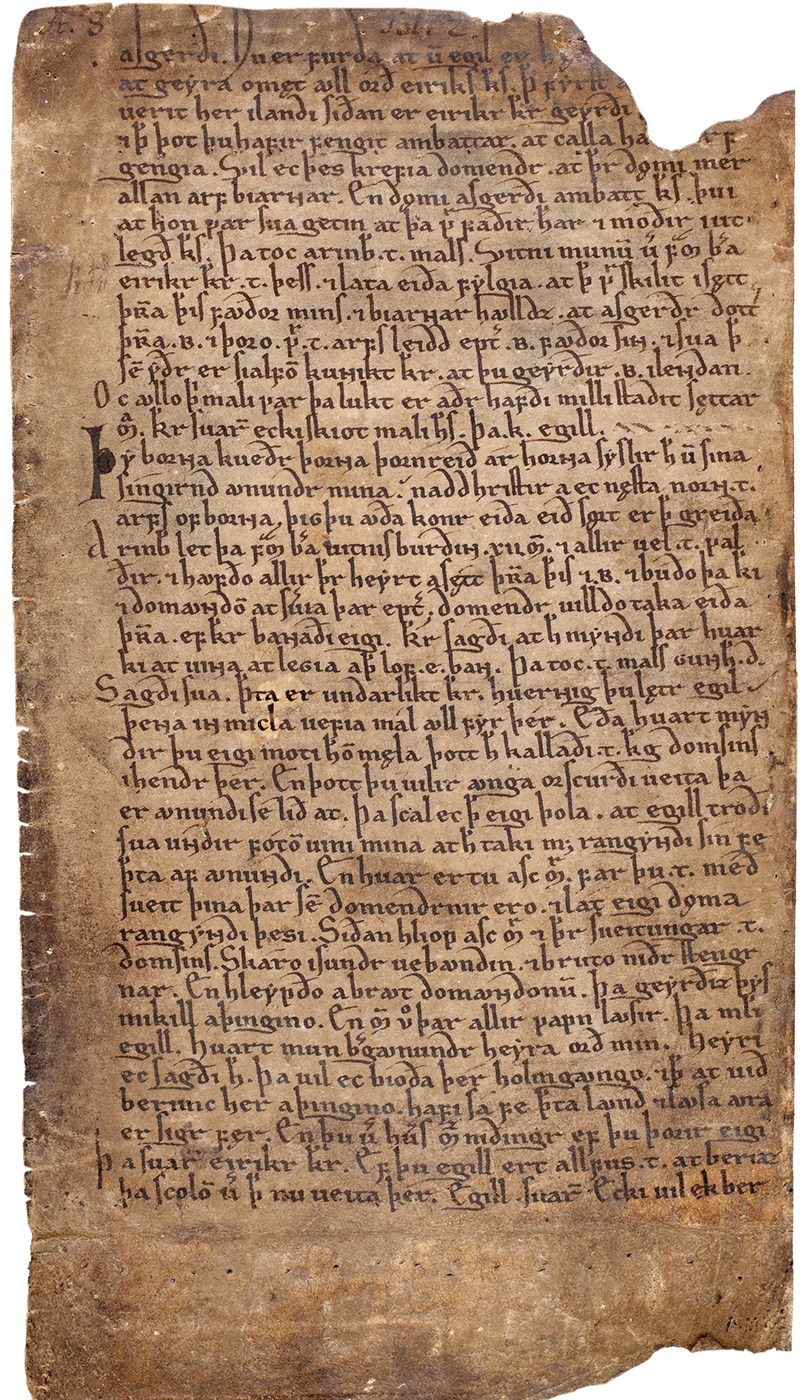 asgerdi. Nu er ꝼurda at u̅ egil er
at geyra omęt ꜹll ord eiriks ks. þ ꝼyrst
uerit her ilandi sidan er eirikr kr geyrdi
⁊ þ þot þu haꝼir ꝼengit ambattar. at calla
gengia. Vil ec þes kreꝼia domendr. at þr dømi mer
allan arꝼ biarnar. En dømi asgerdi ambatt ks. þui
at hon ꝩar sua getin at þa ꝩ ꝼadir har ⁊ modir iut
legd ks. Þa toc arinb. t. mals. Vitni munu̅ u ꝼᷓm ba
eirikr kr. t. þess. ⁊ lata eida ꝼylgia. at þ ꝩ skilit i sętt
þꝛa þis ꝼꜹdor mins. ⁊ biarnar hꜹlldz. at asgerdr dott
þꝛa. B. ⁊ þoro. ꝩ. t. arꝼs leidd ept. B. ꝼꜹdor sin. ⁊ sua þ
se̅ ydr er sialꝼo̅ kunikt kr. at þu geyrdir. B. ilendan.
Oc ꜹllo þ mali ꝩar þa lukt er adr haꝼdi milli stadit sęttar
m̅. kr suar eckiskiot mali hs. þa. k. egill.
Þy borna kuedr þorna þornreid at horna syslir h u̅ sina
singirnd ꜹnundr mina. nadd hristir a ec nęsta norn. t.
arꝼs oꝼ borna, þig þu ꜹda konr eida eid sort er þ greida
Arinb let þa ꝼm ba uitnisburdin. xii m. ⁊ allir uel. t. ꝩal
dir. ⁊ hꜹꝼdo allir þr heyrt a sętt þꝛa þis ⁊. B. ⁊ budo þa ki
⁊ domꜹndo̅ at suia þar ept. domendr uilldo taka eida
þꝛa. eꝼ kr banadi eigi. kr sagdi at h myndi þar huar
ki at uina at legia a þ loꝼ. e. ban. Þa toc. t. mals gunh. d.
Sagdi sua. þta er undarlikt kr. huernig þu lętr egil
þena in micla ueꝼia mal ꜹll ꝼyr þer. Eda huart myn
dir þu eigi moti ho̅ męla þott h kalladi. t. kgdomsins
ihendr þer. En þott þu uilir ꜹnga orscurdi ueita þa
er ꜹnundi se lid at. Þa scal ec þ eigi þola. at egill trodi
sua undir ꝼoto̅ uini mina at h taki mꝫ rangyndi sin ꝼe
þta aꝼ ꜹnundi. En huar ertu asc m. ꝼar þu. t. med
sueit þina þar se̅ domendrnir ero. ⁊ lat eigi døma
rangyndi þesi. Sidan hliop asc m ⁊ þr sueitungar. t.
domsins. Skaro isundr uebꜹndin. ⁊ bruto nidr stengr
nar. En hleyꝩdo abrꜹt domꜹndonu̅. þa geyrdiz þys
mikill aþingino. En m̅ uo þar allir ꝩapn lꜹsir. Þa mlti
egill. huart mun bgꜹnundr heyra ord min. Heyri
ec sagdi h. Þa uil ec bioda þer holmgꜹngo. ⁊ þ at uid
berimc her aþingino. haꝼi sa ꝼe þta lꜹnd ⁊ lꜹsa ꜹra
er sigr ꝼer. En þu u hus m nidingr eꝼ þu þorir eigi
Þa suar eirikr kr. Eꝼ þu egill ert allꝼus. t. at beriaz
þa scolo̅ u þ nu ueita þer. Egill suar Ecki uil ek ber